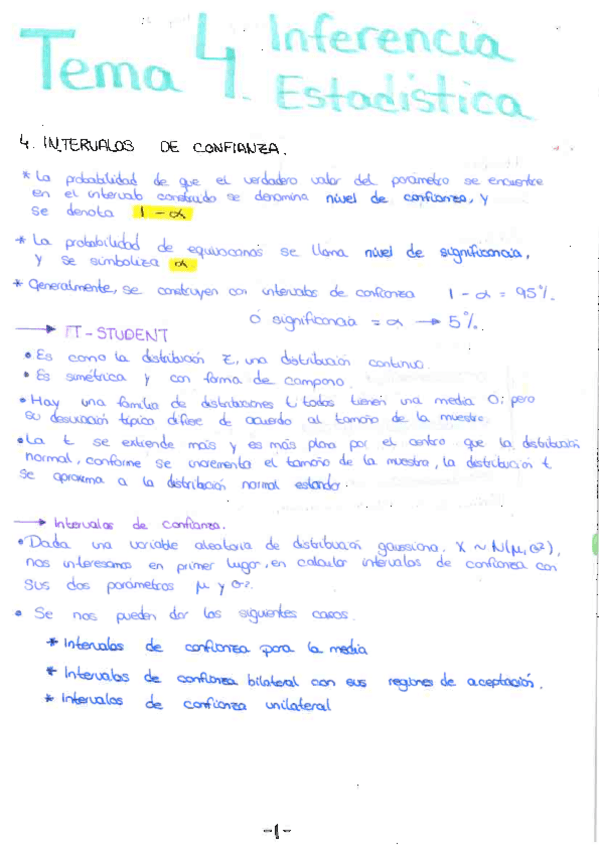 Tema 4. Inferencia
Estadística
4. INTERVALOS DE CONFIANZA.
* La probabilidad de que el verdadero valor del parámetro se encuentre
en el intervalo construido se denomina nivel de confianza, y
se denota 1 - α
* La probabilidad de equivocarnos se llama nivel de significancia,
y se simboliza α
* Generalmente, se construyen con intervalos de confianza 1 - α = 95%.
ó significancia = α → 5%.
→ T-STUDENT
• Es como la distribución Z, una distribución continua.
• Es simétrica y con forma de campana.
• Hay una familia de distribuciones t, todas tienen una media 0; pero
su desviación típica difiere de acuerdo al tamaño de la muestra.
• La t se extiende más y es más plana por el centro que la distribución
normal, conforme se incrementa el tamaño de la muestra, la distribución t
se aproxima a la distribución normal estándar.
→ Intervalos de confianza.
• Dada una variable aleatoria de distribución gaussiana, X ~ N(μ, σ²),
nos interesamos en primer lugar, en calcular intervalos de confianza con
sus dos parámetros μ y σ².
• Se nos pueden dar los siguientes casos.
* Intervalos de confianza para la media
* Intervalos de confianza bilateral con sus regiones de aceptación.
* Intervalos de confianza unilateral
-1-